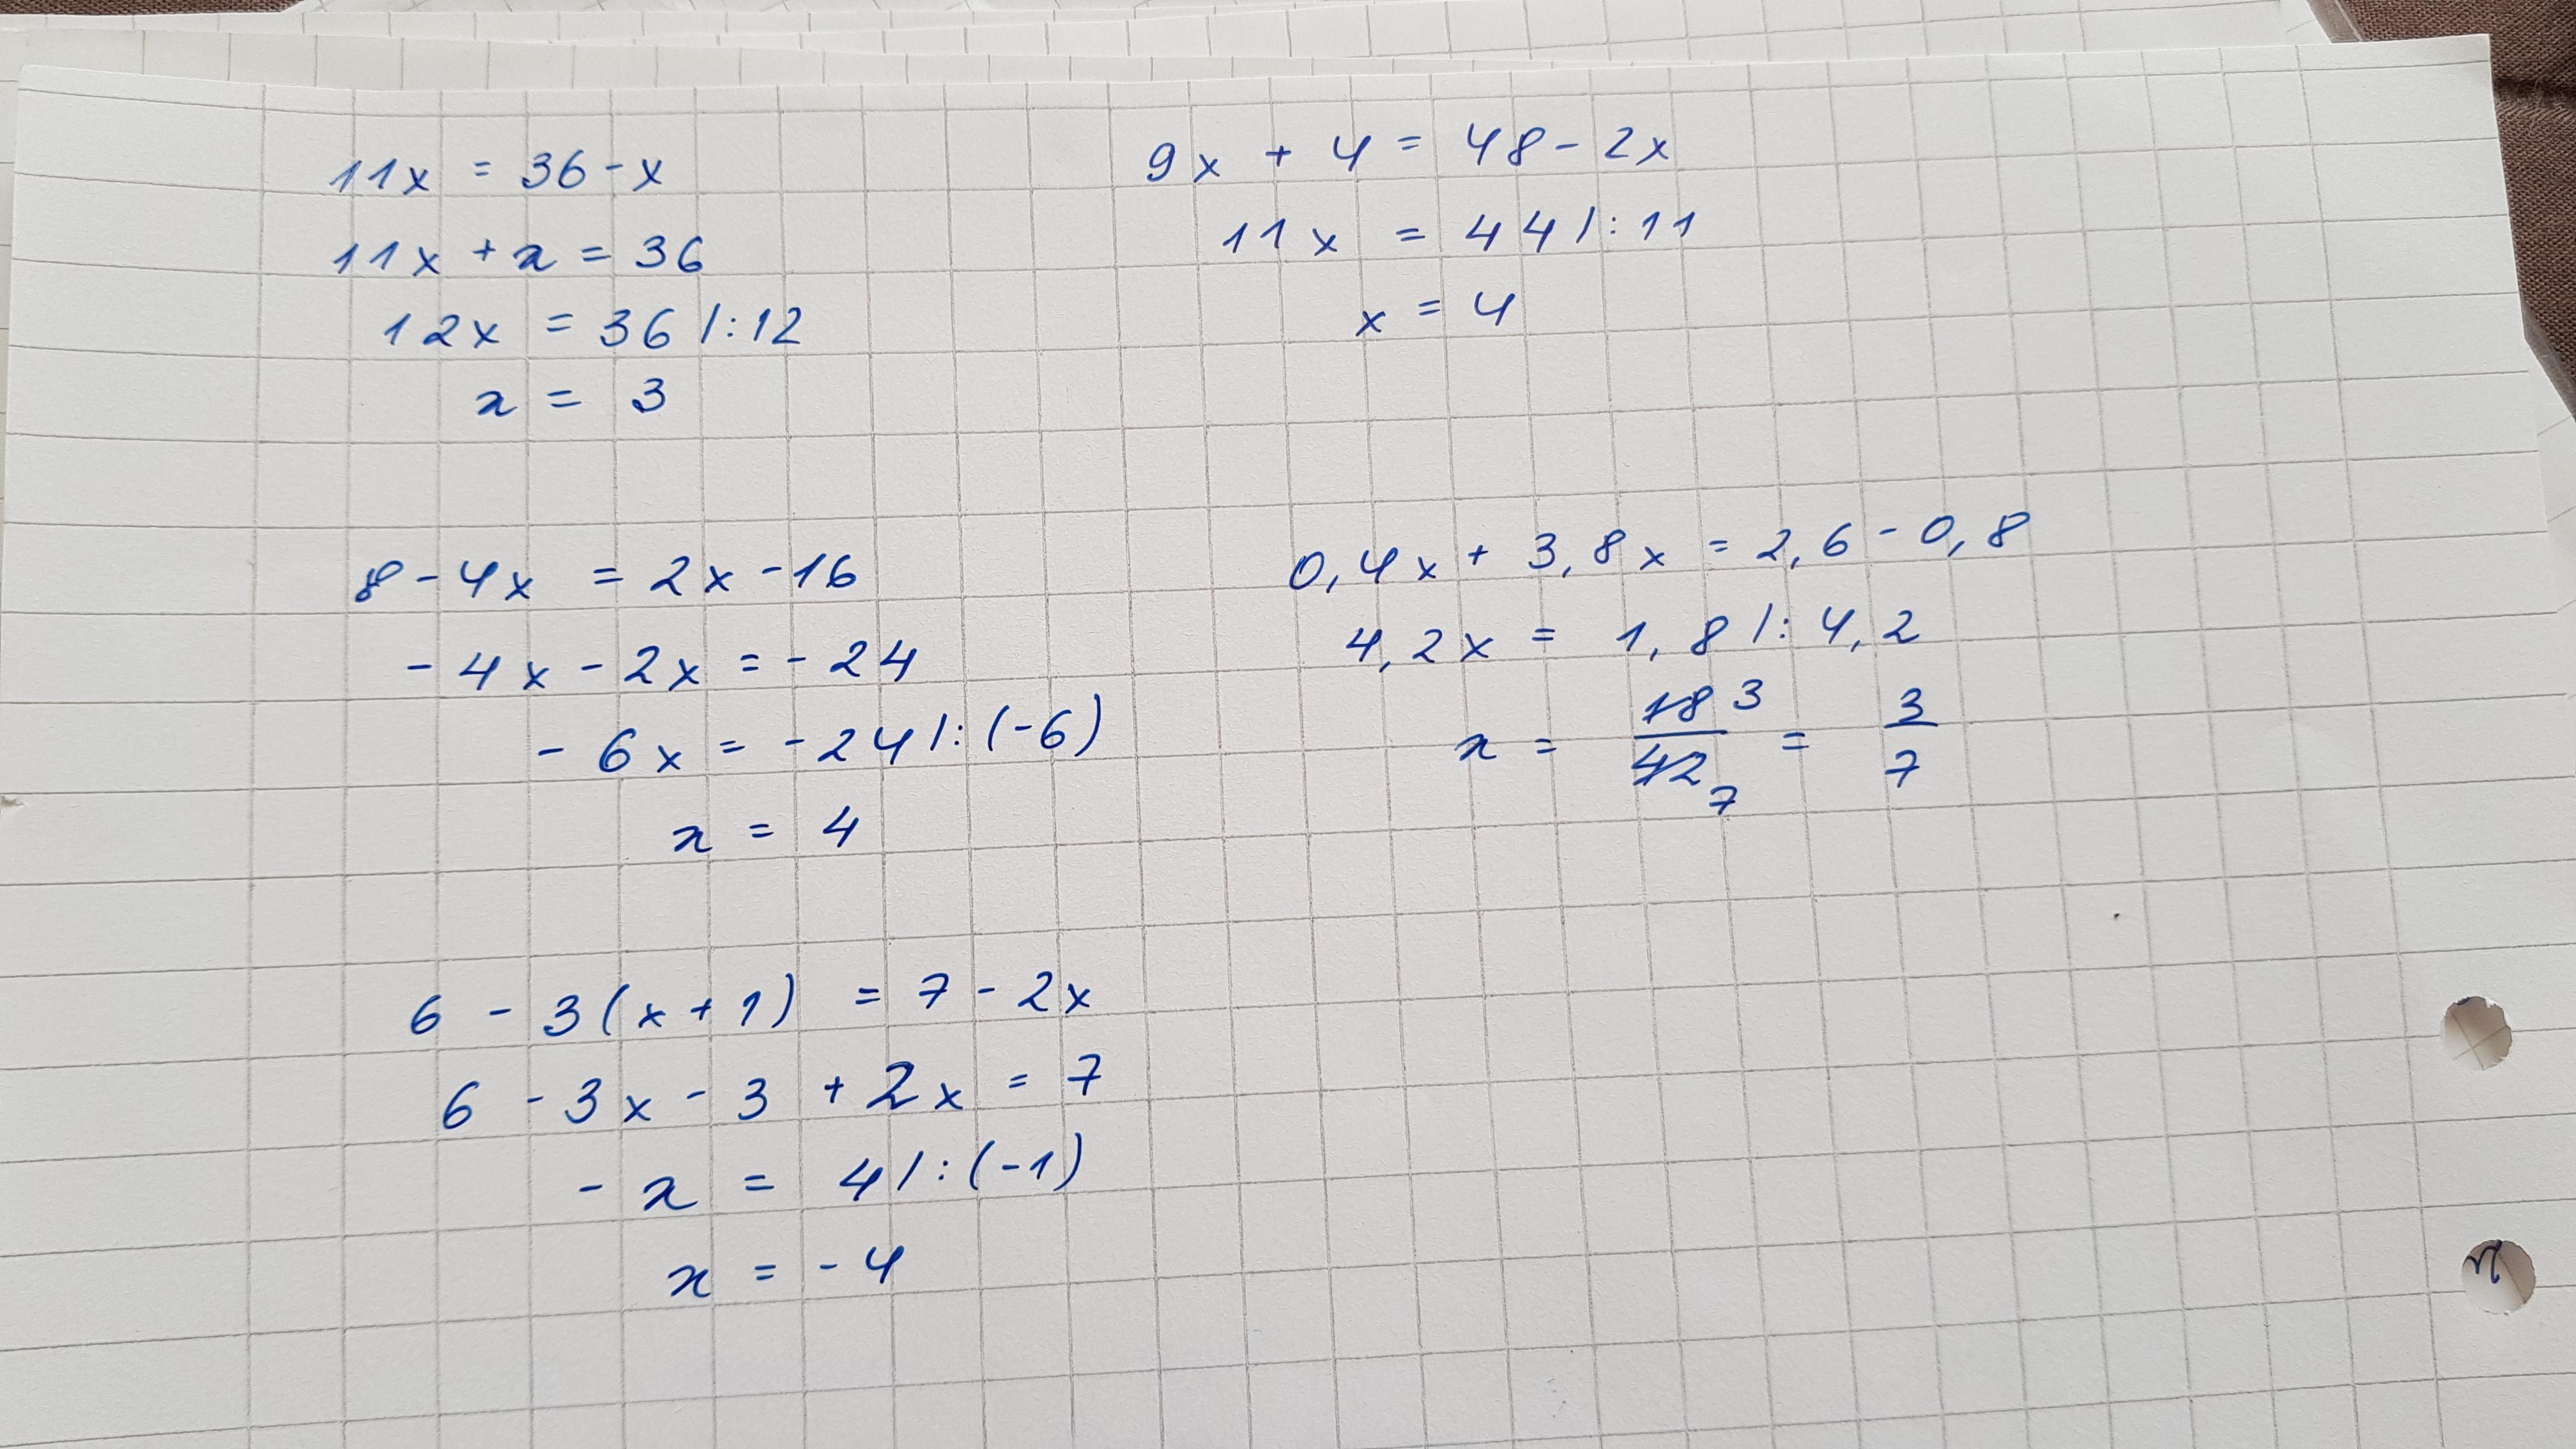 11x = 36 - x
11x + x = 36
12x = 36 /: 12
x = 3
9x + 4 = 48 - 2x
11x = 44 /: 11
x = 4
8 - 4x = 2x - 16
- 4x - 2x = - 24
- 6x = - 24 /: (-6)
x = 4
0,4x + 3,8x = 2,6 - 0,8
4,2x = 1,8 /: 4,2
x = 18 3 / 42 7 = 3/7
6 - 3(x + 1) = 7 - 2x
6 - 3x - 3 + 2x = 7
- x = 4 /: (-1)
x = - 4